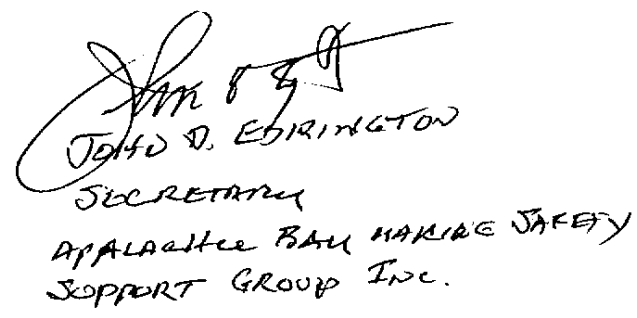 JOHN D. EDRINGTON
SECRETARY
APALACHEE BAY MARINE SAFETY
SUPPORT GROUP INC.